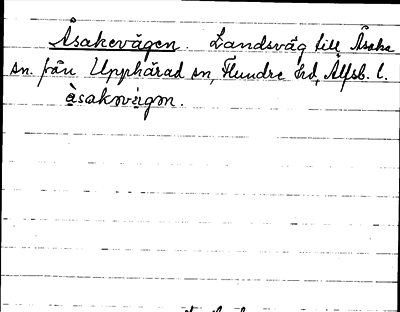 Åsakevägen. Landsväg till Åsaka
sn. från Upphärad sn, Flundre hd, Älfsb. l.
àsakvägen.